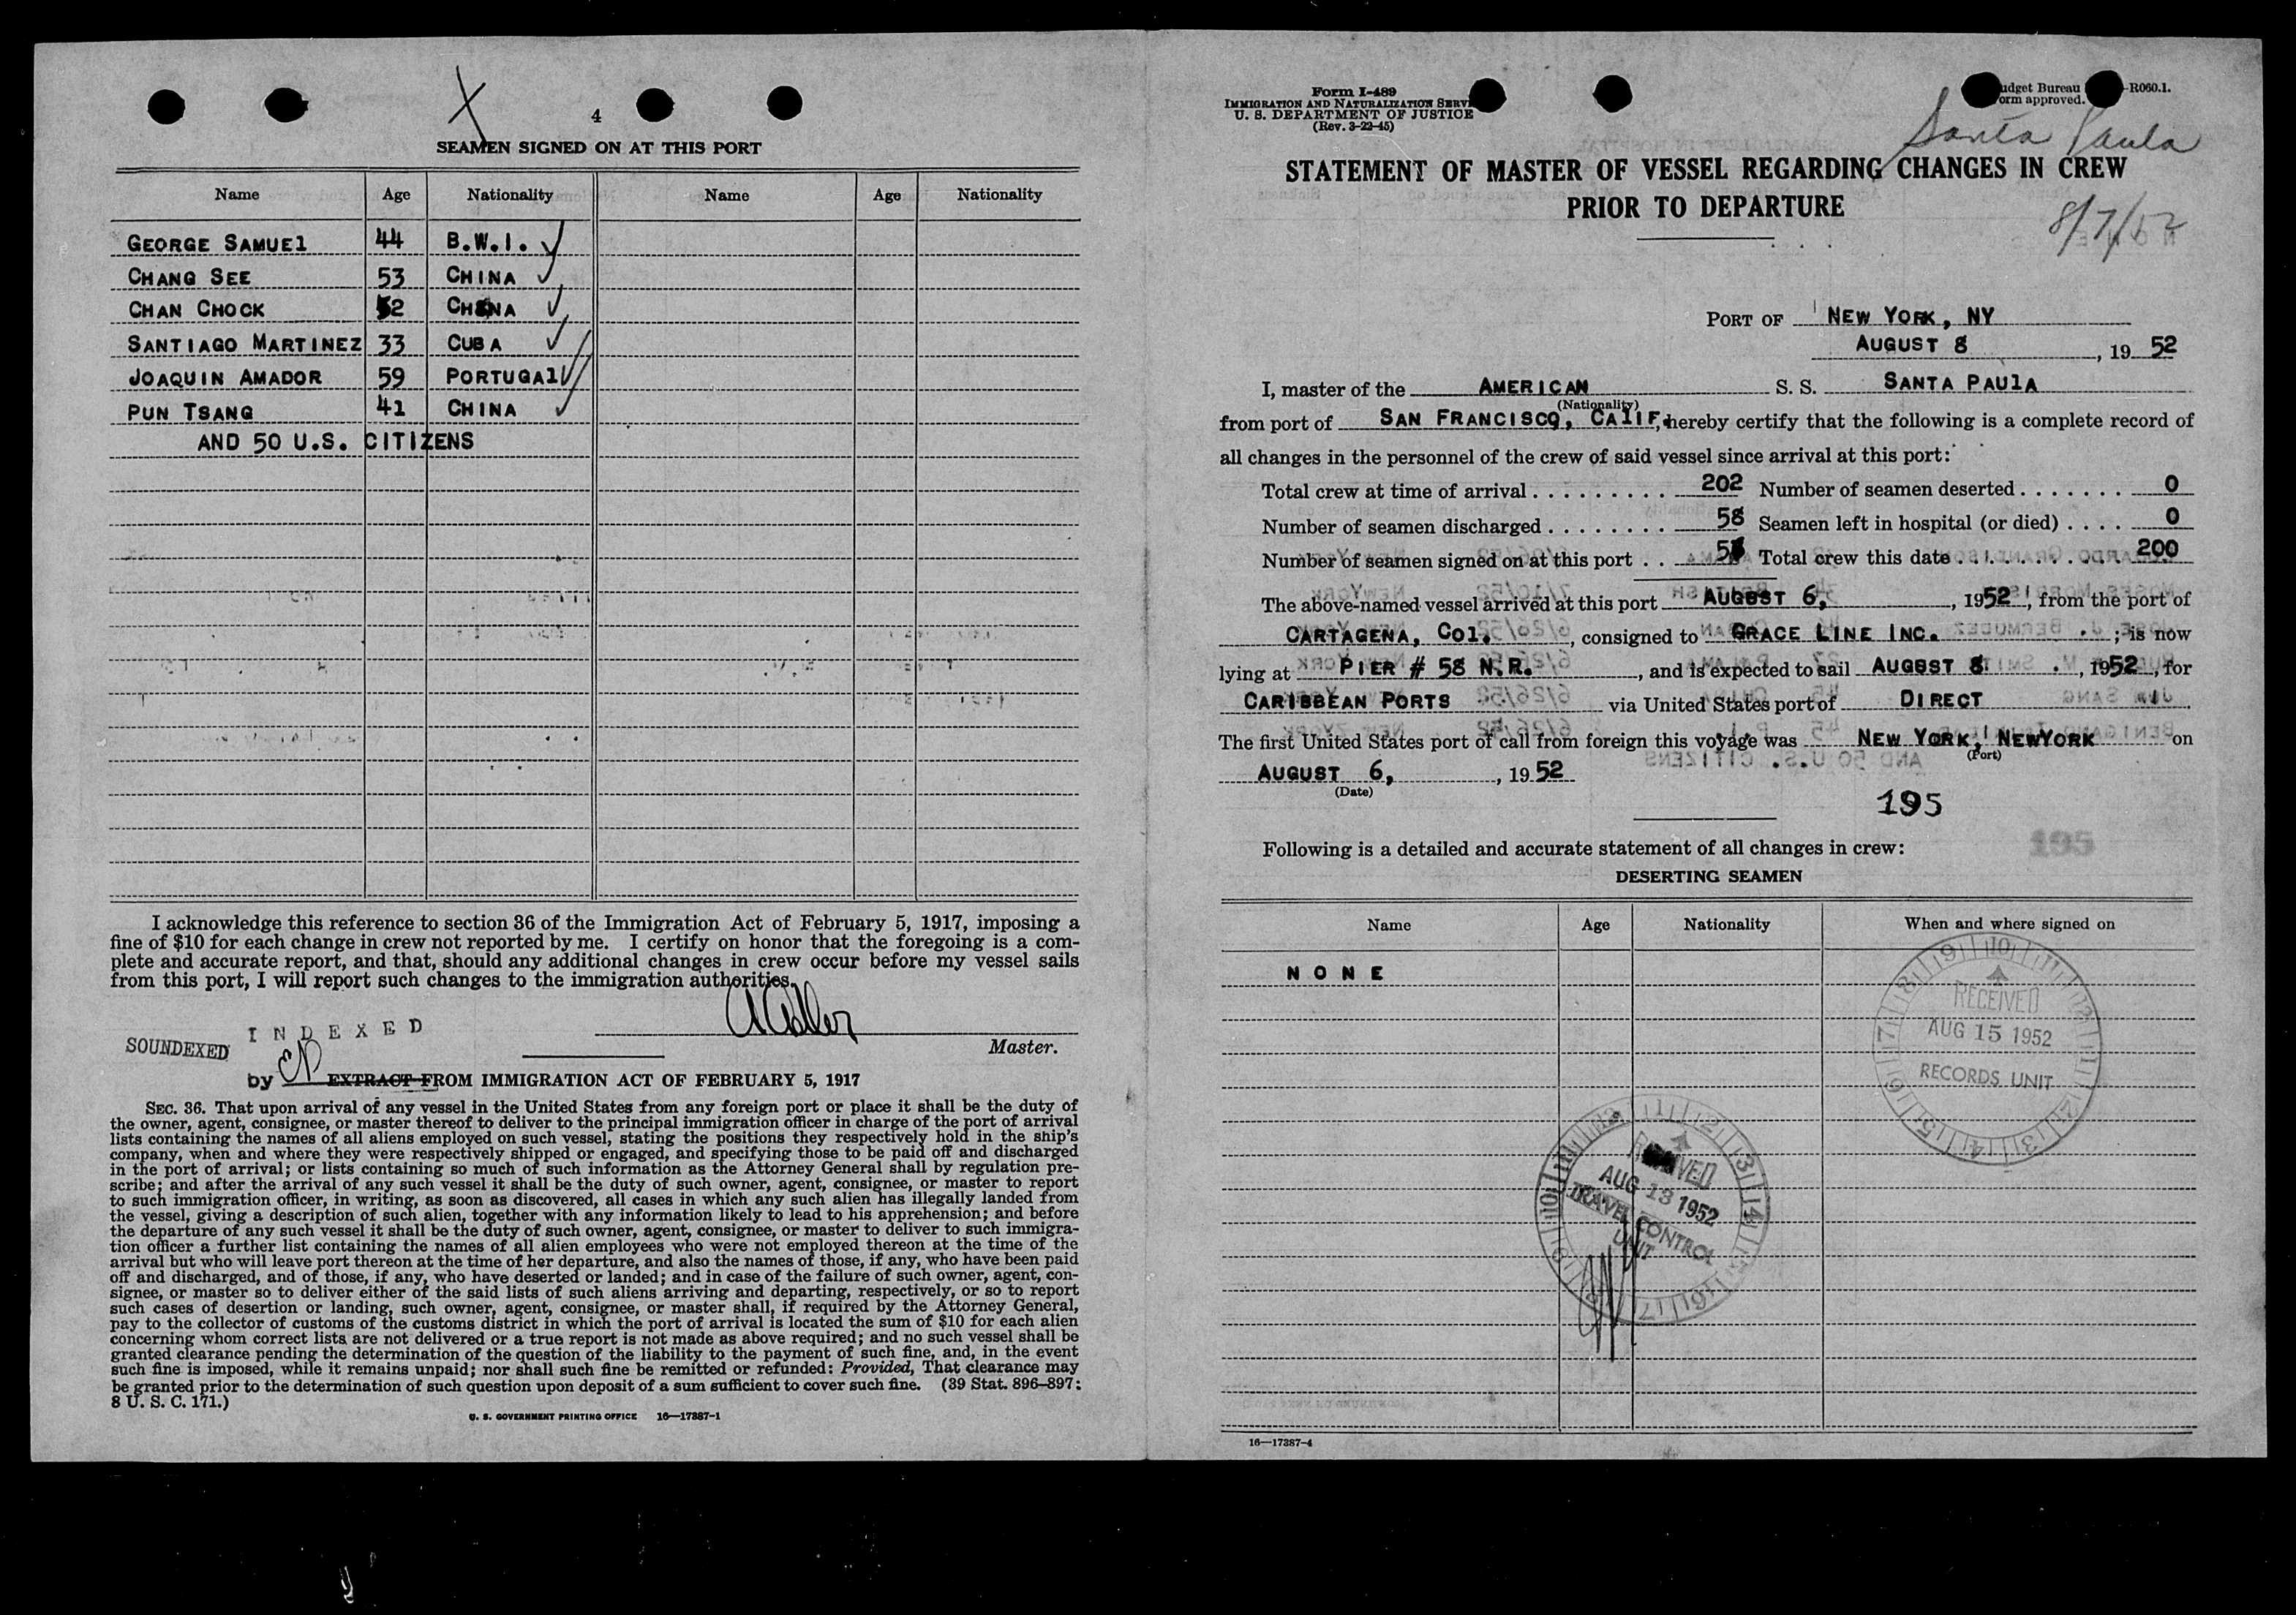 4
SEAMEN SIGNED ON AT THIS PORT
Name Age Nationality Name Age Nationality
GEORGE SAMUEL 44 B.W.I.
CHANG SEE 53 CHINA
CHAN CHOCK 52 CHINA
SANTIAGO MARTINEZ 33 CUBA
JOAQUIN AMADOR 59 PORTUGAL
PUN TSANG 41 CHINA
AND 50 U.S. CITIZENS
I acknowledge this reference to section 36 of the Immigration Act of February 5, 1917, imposing a
fine of $10 for each change in crew not reported by me. I certify on honor that the foregoing is a com-
plete and accurate report, and that, should any additional changes in crew occur before my vessel sails
from this port, I will report such changes to the immigration authorities.
INDEXED
SOUNDEXED
Master.
by
EXTRACT FROM IMMIGRATION ACT OF FEBRUARY 5, 1917
SEC. 36. That upon arrival of any vessel in the United States from any foreign port or place it shall be the duty of
the owner, agent, consignee, or master thereof to deliver to the principal immigration officer in charge of the port of arrival
lists containing the names of all aliens employed on such vessel, stating the positions they respectively hold in the ship's
company, when and where they were respectively shipped or engaged, and specifying those to be paid off and discharged
in the port of arrival; or lists containing so much of such information as the Attorney General shall by regulation pre-
scribe; and after the arrival of any such vessel it shall be the duty of such owner, agent, consignee, or master to report
to such immigration officer, in writing, as soon as discovered, all cases in which any such alien has illegally landed from
the vessel, giving a description of such alien, together with any information likely to lead to his apprehension; and before
the departure of any such vessel it shall be the duty of such owner, agent, consignee, or master to deliver to such immigra-
tion officer a further list containing the names of all alien employees who were not employed thereon at the time of the
arrival but who will leave port thereon at the time of her departure, and also the names of those, if any, who have been paid
off and discharged, and of those, if any, who have deserted or landed; and in case of the failure of such owner, agent, con-
signee, or master so to deliver either of the said lists of such aliens arriving and departing, respectively, or so to report
such cases of desertion or landing, such owner, agent, consignee, or master shall, if required by the Attorney General,
pay to the collector of customs of the customs district in which the port of arrival is located the sum of $10 for each alien
concerning whom correct lists are not delivered or a true report is not made as above required; and no such vessel shall be
granted clearance pending the determination of the question of the liability to the payment of such fine, and, in the event
such fine is imposed, while it remains unpaid; nor shall such fine be remitted or refunded: Provided, That clearance may
be granted prior to the determination of such question upon deposit of a sum sufficient to cover such fine. (39 Stat. 896-897;
8 U. S. C. 171.)
U. S. GOVERNMENT PRINTING OFFICE 16—17387-1
Form I-489
IMMIGRATION AND NATURALIZATION SERVI
U. S. DEPARTMENT OF JUSTICE
(Rev. 3-22-45)
udget Bureau -R060.1.
orm approved.
Santa Paula
STATEMENT OF MASTER OF VESSEL REGARDING CHANGES IN CREW
PRIOR TO DEPARTURE
8/7/52
PORT OF NEW YORK, NY
AUGUST 8, 19 52
I, master of the AMERICAN S. S. SANTA PAULA
(Nationality)
from port of SAN FRANCISCO, CALIF, hereby certify that the following is a complete record of
all changes in the personnel of the crew of said vessel since arrival at this port:
Total crew at time of arrival 202 Number of seamen deserted 0
Number of seamen discharged 58 Seamen left in hospital (or died) 0
Number of seamen signed on at this port Total crew this date 200
The above-named vessel arrived at this port AUGUST 6, 1952, from the port of
CARTAGENA, COL., consigned to GRACE LINE INC.; is now
lying at PIER # 58 N.R., and is expected to sail AUGUST 8, 1952, for
CARIBBEAN PORTS via United States port of DIRECT
The first United States port of call from foreign this voyage was NEW YORK, NEWYORK on
(Port)
AUGUST 6, 1952
(Date)
195
195
Following is a detailed and accurate statement of all changes in crew:
DESERTING SEAMEN
Name Age Nationality When and where signed on
NONE
RECEIVED
AUG 15 1952
RECORDS UNIT
RECEIVED
AUG 13 1952
TRAVEL CONTROL
UNIT
16—17387-4